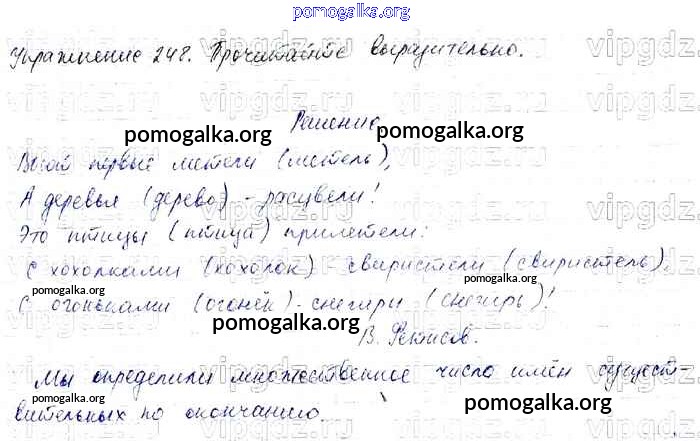 pomogalka.org
Упражнение 248. Прочитайте выразительно.
vipgdz.ru vipgdz.ru vipgdz.ru
Решение
pomogalka.org pomogalka.org
Воют первые метели (метель),
А деревья (дерево) - расцвели!
Это птицы (птица) прилетели:
С хохолками (хохолок) - свиристели (свиристель),
pomogalka.org pomogalka.org
С огоньками (огонёк) - снегири (снегирь)!
pomogalka.org
В. Фетисов.
Мы определили множественное число имён сущест-
вительных по окончанию.
pomogalka.org pomogalka.org